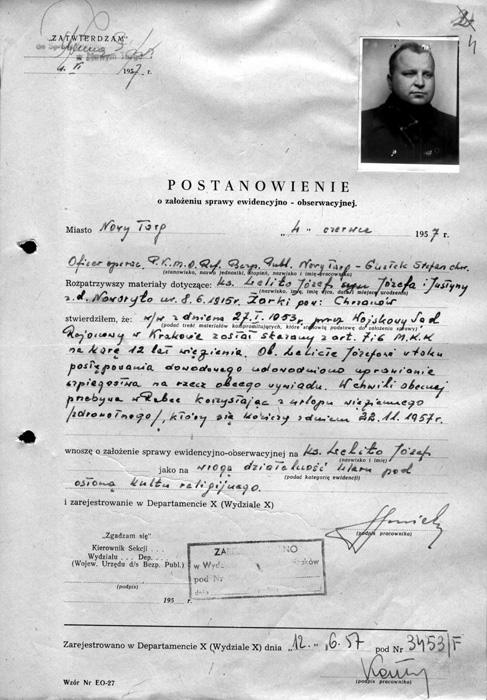 4
"ZATWIERDZAM"
4. VI 1957 r.
POSTANOWIENIE
o założeniu sprawy ewidencyjno - obserwacyjnej.
Miasto Nowy Targ „4" czerwca 1957 r.
Oficer operac. P.K.M.O. Ref. Bezp. Publ. Nowy Targ - Gustek Stefan chor.
(stanowisko, nazwa jednostki, stopień, nazwisko i imię pracownika)
Rozpatrzywszy materiały dotyczące: ks. Lelito Józef syn Józefa i Justyny
(nazwisko, imię, imię ojca, data i miejsce urodzenia)
z d. Nowsryło ur. 8.6.1915r. Żarki pow: Chrzanów
stwierdziłem, że: w/w z dniem 27.I.1953r. przez Wojskowy Sąd
(podać treść materiałów kompromitujących, które stanowią podstawę do założenia sprawy)
Rejonowy w Krakowie został skazany z art. 7 i 6 M.K.K
na karę 12 lat więzienia. Ob. Lelicie Józefowi w toku
postępowania dowodowego udowodniono uprawianie
szpiegostwa na rzecz obcego wywiadu. W chwili obecnej
przebywa w Rabce korzystając z urlopu więziennego
/zdrowotnego/, który się kończy z dniem 22.11.1957r.
wnoszę o założenie sprawy ewidencyjno-obserwacyjnej na ks. Lelito Józef
(nazwisko i imię)
jako na wrogą działalność kleru pod
(podać kategorię ewidencji)
osłoną kultu religijnego.
i zarejestrowanie w Departamencie X (Wydziale X)
(podpis pracownika)
„Zgadzam się"
Kierownik Sekcji
Wydziału . . . Dep.
(Wojew. Urzędu d/s Bezp. Publ.)
(podpis)
195 r.
w Wydz. Kraków
pod Nr
dnia
Zarejestrowano w Departamencie X (Wydziale X) dnia „12." 6. 57 pod Nr 3453/F
(podpis pracownika)
Wzór Nr EO-27